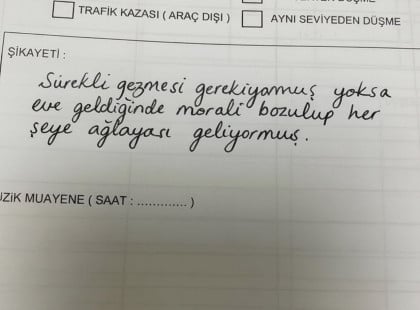 TRAFİK KAZASI ( ARAÇ DIŞI )
AYNI SEVİYEDEN DÜŞME
ŞİKAYETİ :
Sürekli gezmesi gerekiyomuş yoksa
eve geldiğinde morali bozulup her
şeye ağlayası geliyormuş.
İZİK MUAYENE ( SAAT : ............. )